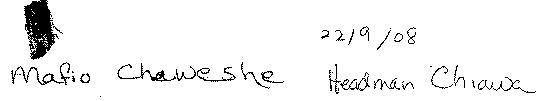 22/9/08
Mafio Chaweshe Headman Chiawa